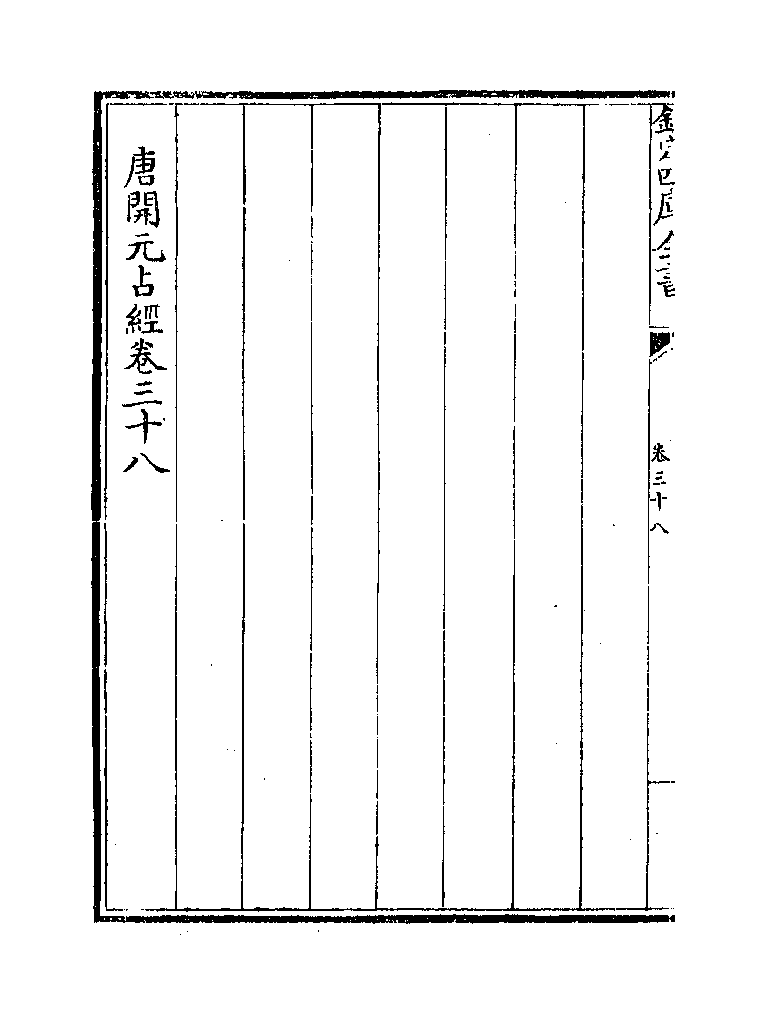 欽定四庫全書
卷三十八
唐開元占經卷三十八